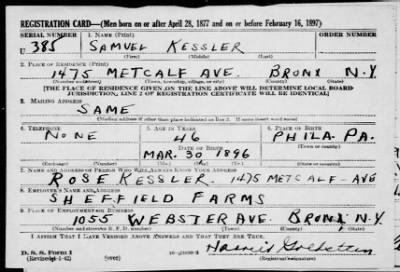 REGISTRATION CARD—(Men born on or after April 28, 1877 and on or before February 16, 1897)
SERIAL NUMBER 1. NAME (Print) ORDER NUMBER
U 385 SAMUEL KESSLER
(First) (Middle) (Last)
2. PLACE OF RESIDENCE (Print)
1475 METCALF AVE. BRONX N.Y.
(Number and street) (Town, township, village, or city) (County) (State)
[THE PLACE OF RESIDENCE GIVEN ON THE LINE ABOVE WILL DETERMINE LOCAL BOARD
JURISDICTION; LINE 2 OF REGISTRATION CERTIFICATE WILL BE IDENTICAL]
3. MAILING ADDRESS
SAME
[Mailing address if other than place indicated on line 2. If same insert word same]
4. TELEPHONE 5. AGE IN YEARS 6. PLACE OF BIRTH
NONE 46 PHILA.
DATE OF BIRTH (Town or county)
MAR. 30 1896 PA.
(Mo.) (Day) (Yr.) (State or country)
7. NAME AND ADDRESS OF PERSON WHO WILL ALWAYS KNOW YOUR ADDRESS
ROSE KESSLER. 1475 METCALF AVE
8. EMPLOYER'S NAME AND ADDRESS
SHEFFIELD FARMS
9. PLACE OF EMPLOYMENT OR BUSINESS
1055 WEBSTER AVE. BRONX N.Y.
(Number and street or R. F. D. number) (Town) (County) (State)
I AFFIRM THAT I HAVE VERIFIED ABOVE ANSWERS AND THAT THEY ARE TRUE.
D. S. S. Form 1
(Revised 4-1-42) (over)